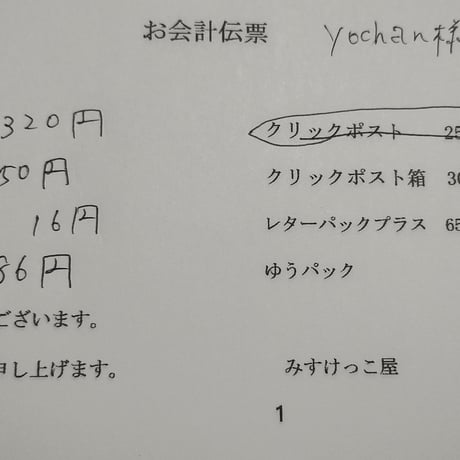 お会計伝票 yochan様
320円
クリックポスト 25
50円
クリックポスト箱 30
16円
レターパックプラス 65
86円
ゆうパック
ございます。
申し上げます。
みすけっこ屋
1